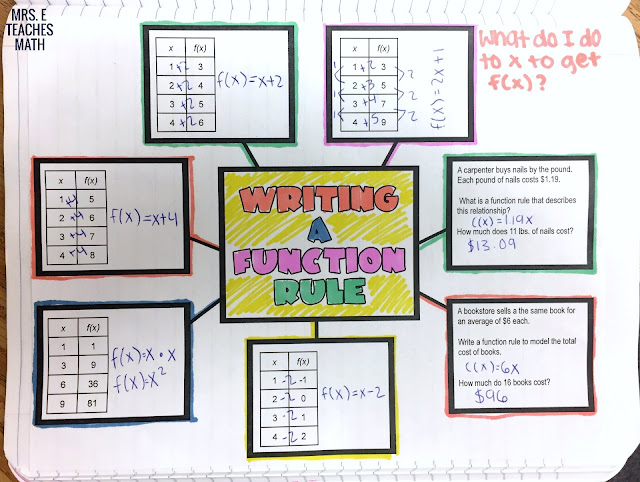 MRS. E
TEACHES
MATH
x f(x)
1 +2 3
2 +2 4
3 +2 5
4 +2 6
f(x)=x+2
x f(x)
1 +2 3
2 +3 5
3 +4 7
4 +5 9
1 2
1 2
1 2
f(x)=2x+1
What do I do
to x to get
f(x)?
x f(x)
1 +4 5
2 +4 6
3 +4 7
4 +4 8
f(x)=x+4
WRITING
A
FUNCTION
RULE
A carpenter buys nails by the pound.
Each pound of nails costs $1.19.
What is a function rule that describes
this relationship?
C(x)=1.19x
How much does 11 lbs. of nails cost?
$13.09
x f(x)
1 1
3 9
6 36
9 81
f(x)=x•x
f(x)=x²
x f(x)
1 -2 -1
2 -2 0
3 -2 1
4 -2 2
f(x)=x-2
A bookstore sells a the same book for
an average of $6 each.
Write a function rule to model the total
cost of books.
C(x)=6x
How much do 16 books cost?
$96